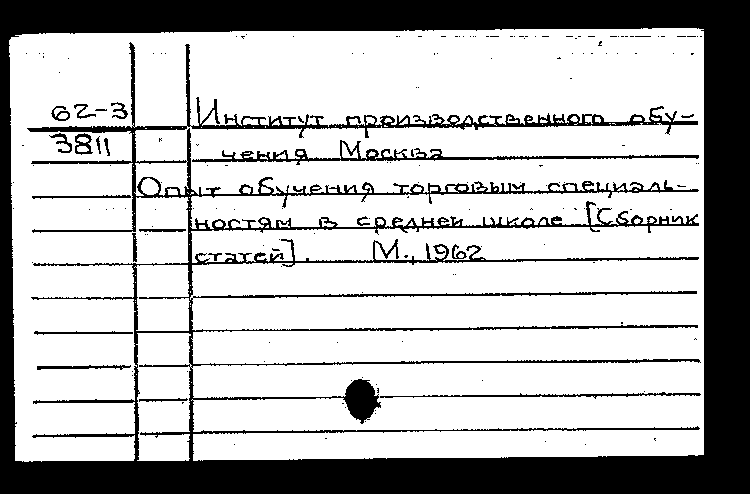 62-3 Институт производственного обу-
3811 чения Москва
Опыт обучения торговым специаль-
ностям в средней школе [Сборник
статей]. М., 1962